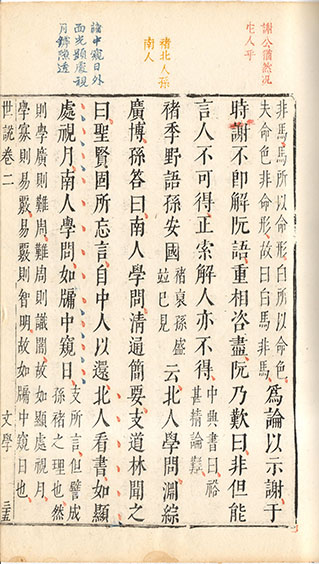 謝公猶然況
它人乎
褚北人孫
南人
牖中窺日外
面光顯處視
月隙透
非馬馬所以命形白所以命色
夫命色非命形故曰白馬非馬
爲論以示謝于
時謝不卽解阮語重相咨盡阮乃歎曰非但能
言人不可得正索解人亦不得
中興書曰裕
甚精論難
褚季野語孫安國
褚裒孫盛
竝已見
云北人學問淵綜
廣博孫答曰南人學問清通簡要支道林聞之
曰聖賢固所忘言自中人以還北人看書如顯
處視月南人學問如牖中窺日
支所言但譬成
孫褚之理也然
則學廣則難周難周則識闇故如顯處視月
學寡則易覈易覈則智明故如牖中窺日也
世說卷二 文學 三五